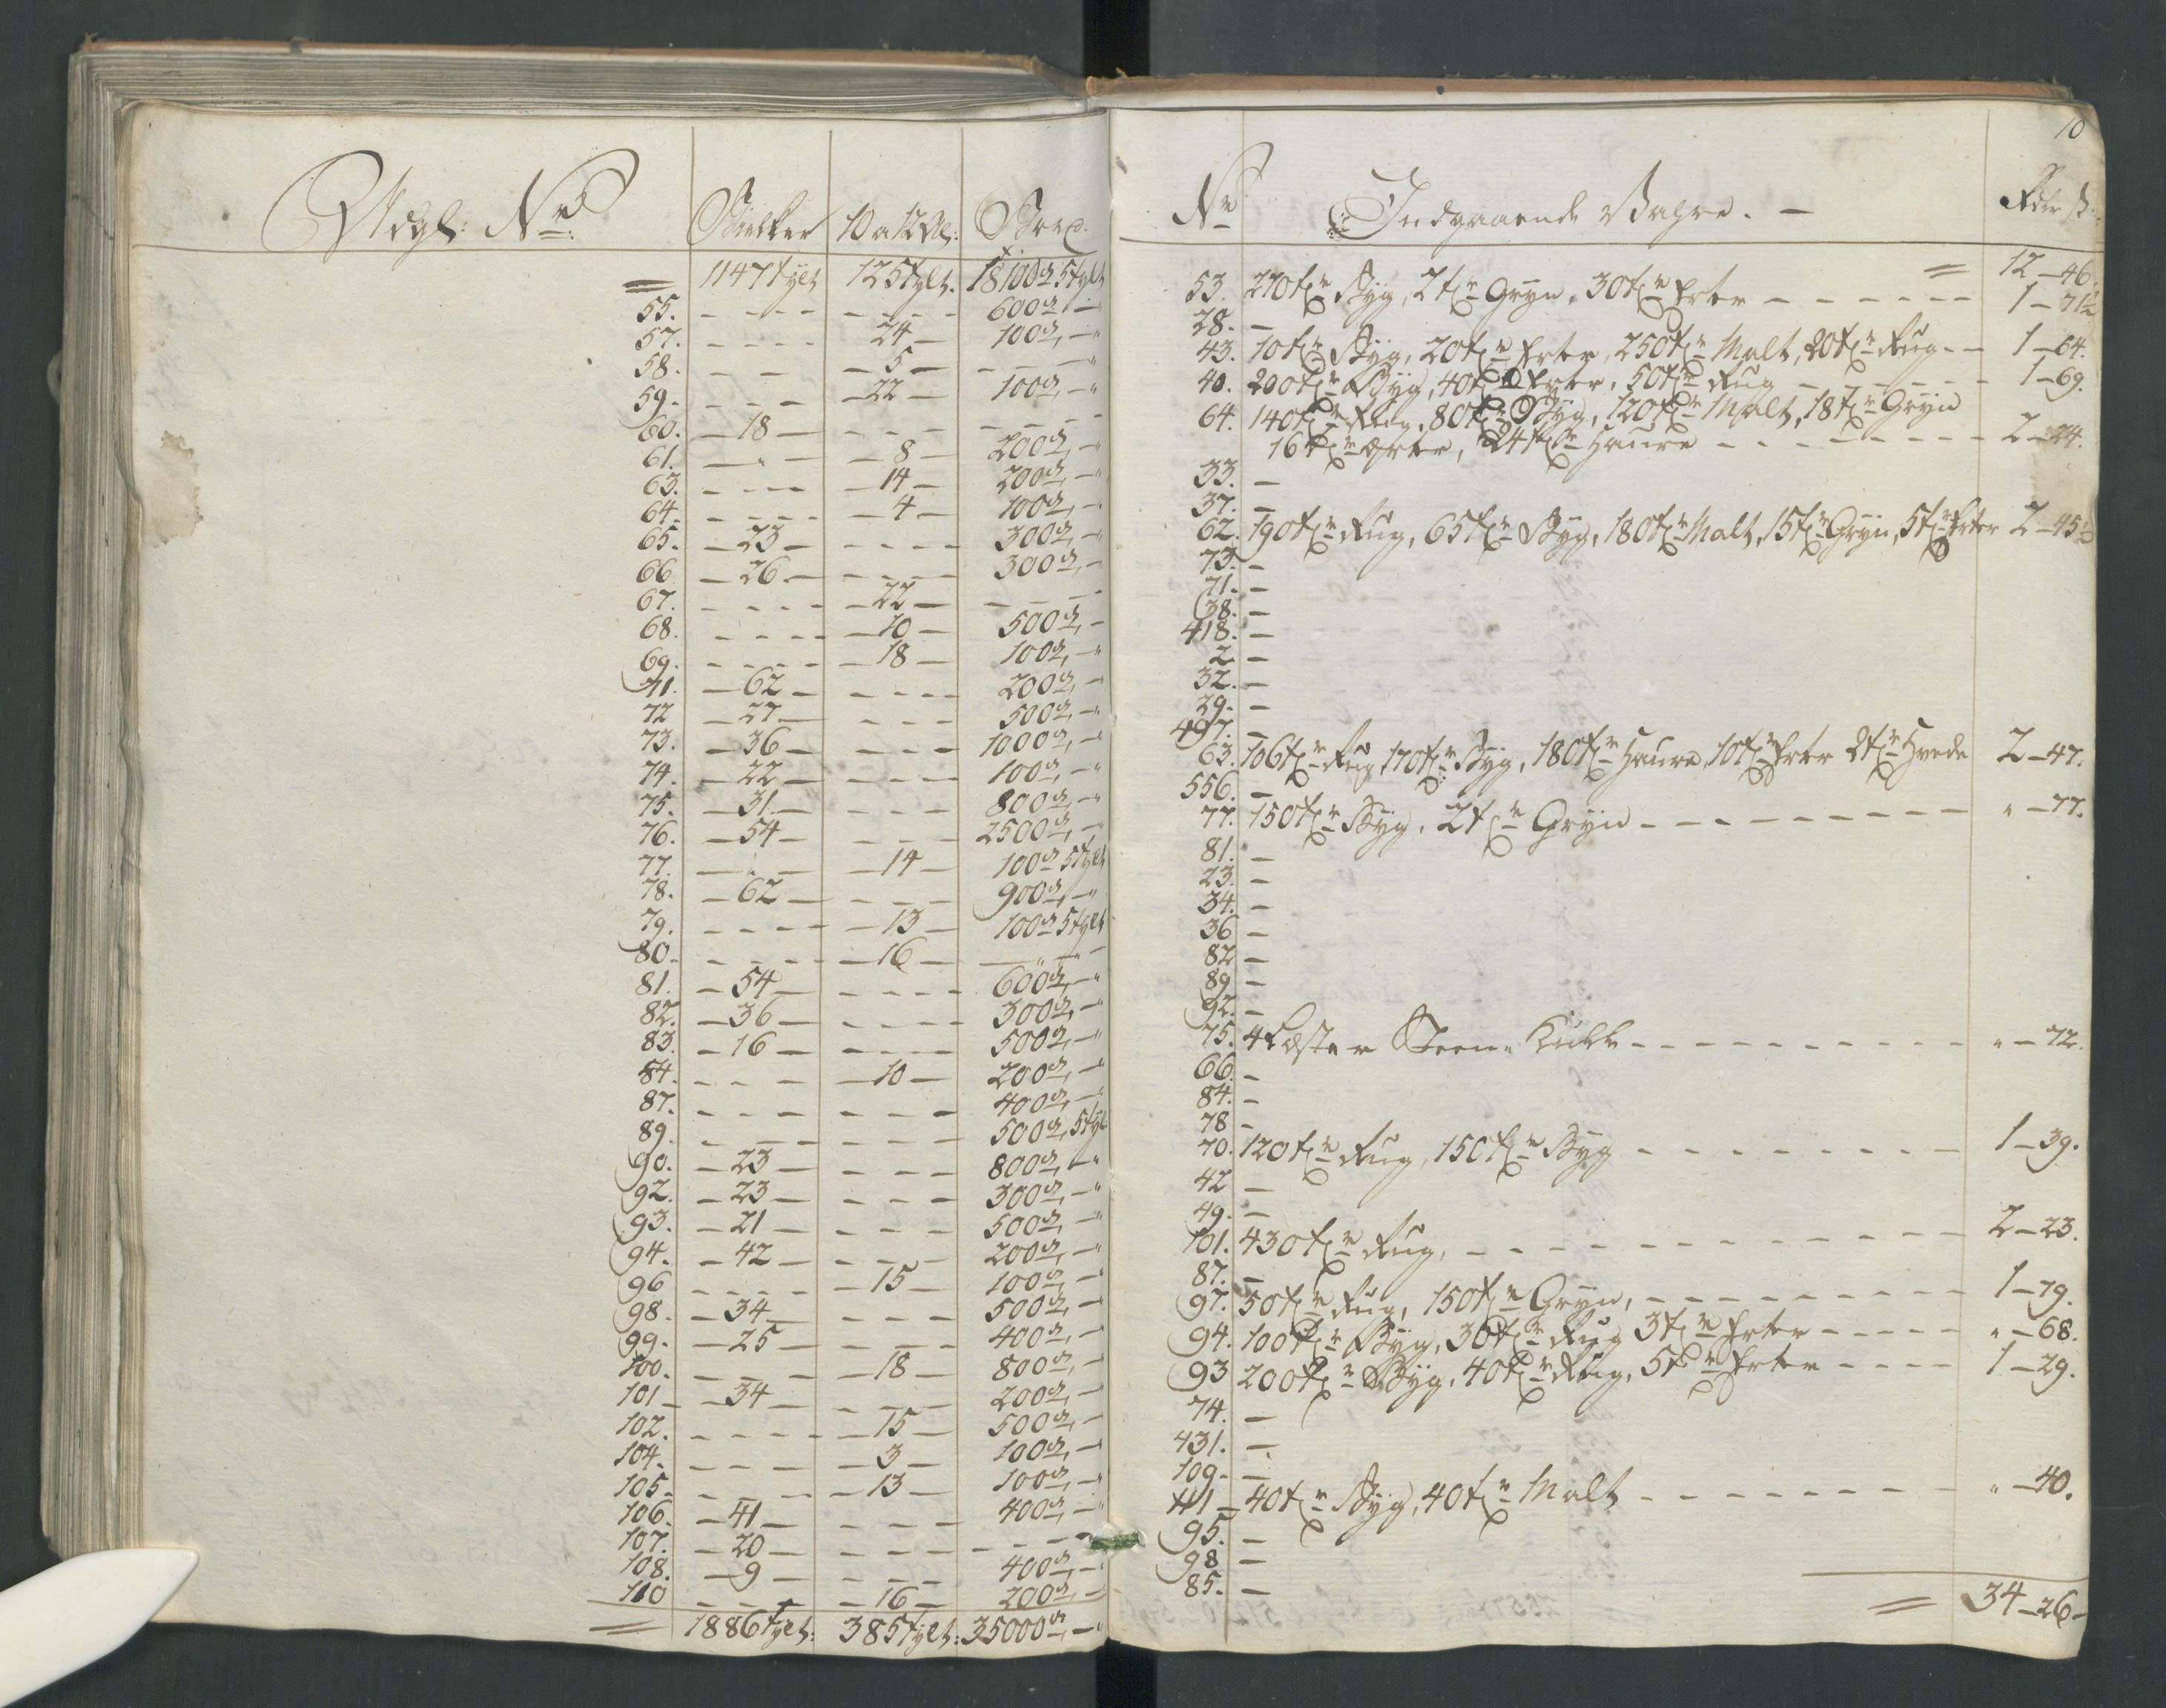 Udgl: No
Bielker 10 a 12 Al: Bord.
1147 tylt 125 tylt. 18100 d 5 tylt
55. - - - - - - - - 600 d, - "
57. - - - - 24 - 100 d, - "
58. - - - 5 - - - - "
59. - - - - 22 - 100 d, - "
60. - 18 - - - - - - - -
61. - " - - 8 - 200 d, - "
63. - - - - 14 - 200 d, - "
64. - - - - - 4 - 100 d, -
65. - 23 - - - - - 300 d, -
66 - 26. - - - - - 300 d, -
67. - - - - - 22 - - - -
68. - - - - - 10 - 500 d, -
69. - - - - - 18 - 100 d, - "
71. - 62 - - - - - 200 d, - "
72 - 27 - - - - 500 d, - "
73. - 36 - - - - 1000 d, - "
74. - 22 - - - - 100 d, - "
75. - 31. - - - - 800 d, - "
76. - 54 - - - - 2500 d, - "
77. - - - - 14 - 100 d 5 tylt
78. - 62 - - - - 900 d, - "
79. - - - - - 13 - 100 d 5 tylt
80. - - - - - 16 - - " - " -
81. - 54 - - - - - 600 d, - "
82. - 36 - - - - - 300 d, - "
83. - 16 - - - - - 500 d, - "
84. - - - - 10 - 200 d, - "
87. - - - - - - - - 400 d, - "
89. - - - - - - - 500 d, 5 tyl
90. - 23 - - - - 800 d, - "
92. - 23 - - - - 300 d, - "
93. - 21 - - - - 500 d, - "
94. - 42 - - - - 200 d, - "
96 - - - - - 15 - 100 d, - "
98. - 34 - - - - 500 d, - "
99. - 25 - - - - 400 d, -
100. - - - - 18 - 800 d, -
101 - - 34 - - - - 200 d, -
102. - - - - - 15 - 500 d, -
104. - - - - - 3 - 100 d, -
105. - - - - - 13 - 100 d, - "
106. - 41 - - - - 400 d, - "
107. - 20 - - - - - - - -
108. - 9 - - - - 400 d, - "
110 - - - - - 16 - 200 d, -
1886 tylt: 385 tylt: 35000 d, - "
10
No Indgaaende Vahre. - Rdr ß:
12 - 46.
53. 270 tr Byg, 2 tr Gryn, 30 tr Erter - - - - - - 1 - 71½
28. -
43. 10 tr Byg, 20 tr Erter, 250 tr Malt, 20 tr Rug - - 1 - 64.
40. 200 tr Byg, 40 tr Erter, 50 tr Rug - - - - - - 1 - 69.
64. 140 tr Rug, 80 tr Byg, 120 tr Malt, 18 tr Gryn
16 tr Erter, 24 tr Haure - - - - - - - - - 2 - 24.
33. -
37. -
62. 190 tr Rug, 65 tr Byg, 180 tr Malt, 15 tr Gryn, 5 tr Erter 2 - 45½
73. -
71. -
38. -
418. -
2 -
32. -
29. -
497. -
63. 106 tr Rug, 170 tr Byg, 180 tr Haure, 10 tr Erter 2 tr Hvede 2 - 47.
556. -
77. 150 tr Byg, 2 tr Gryn - - - - - - - - - " - 77.
81. -
23. -
34. -
36 -
82 -
89 -
92. -
75. 4 Læster Steen Kulle - - - - - - - - - - " - 72.
66. -
84. -
78 -
70. 120 tr Rug, 150 tr Byg - - - - - - - - - 1 - 39.
42 -
49. -
101. 430 tr Rug, - - - - - - - - - - - - 2 - 23.
87. -
97. 50 tr Rug, 150 tr Gryn, - - - - - - - - - 1 - 79.
94. 100 tr Byg, 30 tr Rug 3 tr Erter - - - - - " - 68.
93 200 tr Byg, 40 tr Rug, 5 tr Erter - - - - 1 - 29.
74. -
431. -
109. -
111 - 40 tr Byg, 40 tr Malt - - - - - - - - " - 40.
95. -
98 -
85. -
34 - 26 -